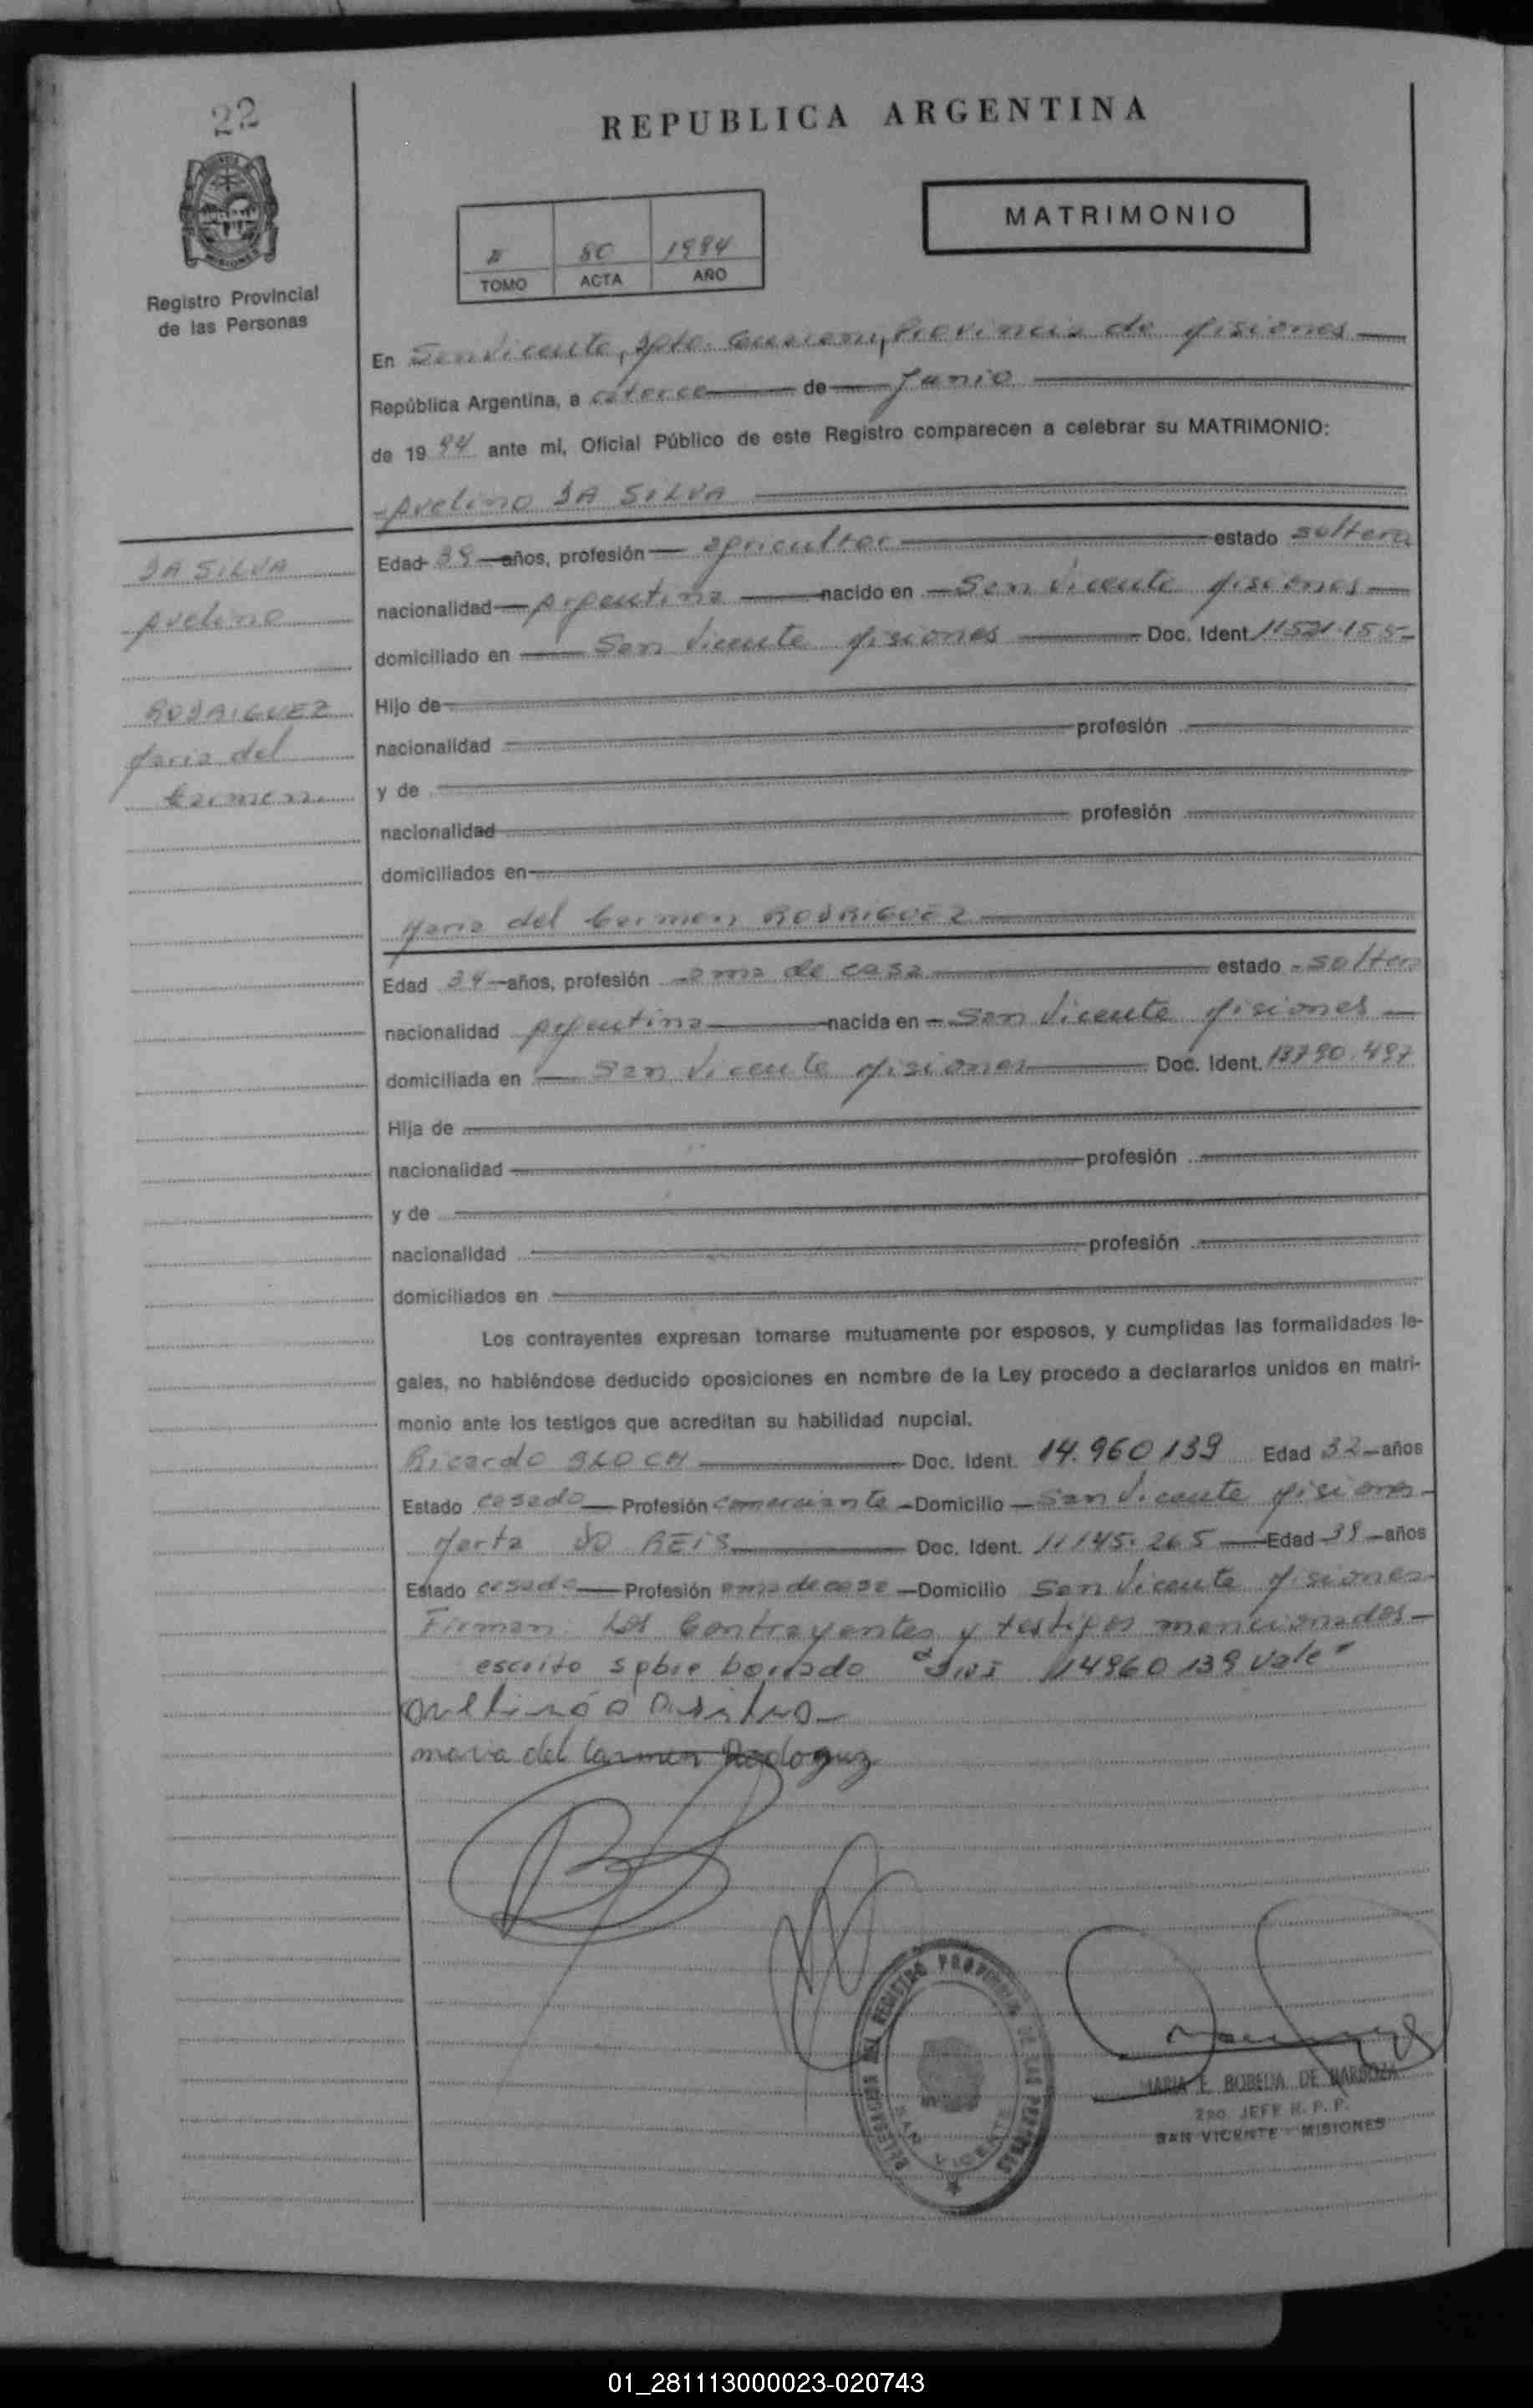 22
REPUBLICA ARGENTINA
MATRIMONIO
II 80 1994
TOMO ACTA AÑO
MISIONES
Registro Provincial
de las Personas
En San Vicente, Dpto. Guarani, Provincia de Misiones
República Argentina, a catorce de Junio
de 1994 ante mí, Oficial Público de este Registro comparecen a celebrar su MATRIMONIO:
Avelino DA SILVA
DA SILVA
Avelino
RODRIGUEZ
Maria del
Carmen
Edad 39 años, profesión agricultor estado soltero
nacionalidad Argentina nacido en San Vicente Misiones
domiciliado en San Vicente Misiones Doc. Ident. 11521.155
Hijo de
nacionalidad profesión
y de
nacionalidad profesión
domiciliados en
Maria del Carmen RODRIGUEZ
Edad 34 años, profesión ama de casa estado soltera
nacionalidad Argentina nacida en San Vicente Misiones
domiciliada en San Vicente Misiones Doc. Ident. 13790.497
Hija de
nacionalidad profesión
y de
nacionalidad profesión
domiciliados en
Los contrayentes expresan tomarse mutuamente por esposos, y cumplidas las formalidades le-
gales, no habiéndose deducido oposiciones en nombre de la Ley procedo a declararlos unidos en matri-
monio ante los testigos que acreditan su habilidad nupcial.
Ricardo BLOCH Doc. Ident. 14.960139 Edad 32 años
Estado casado Profesión comerciante Domicilio San Vicente Misiones
Marta DO REIS Doc. Ident. 11145.265 Edad 39 años
Estado casada Profesión ama de casa Domicilio San Vicente Misiones
Firman: Los Contrayentes y testigos mencionados
escrito sobre borrado 14960139 vale"
maria del Carmen
DELEGACION DEL REGISTRO PROVINCIAL DE LAS PERSONAS
SAN VICENTE
MARIA E. BOBEDA DE BARBOZA
2DO. JEFE R. P. P.
SAN VICENTE - MISIONES
01_281113000023-020743